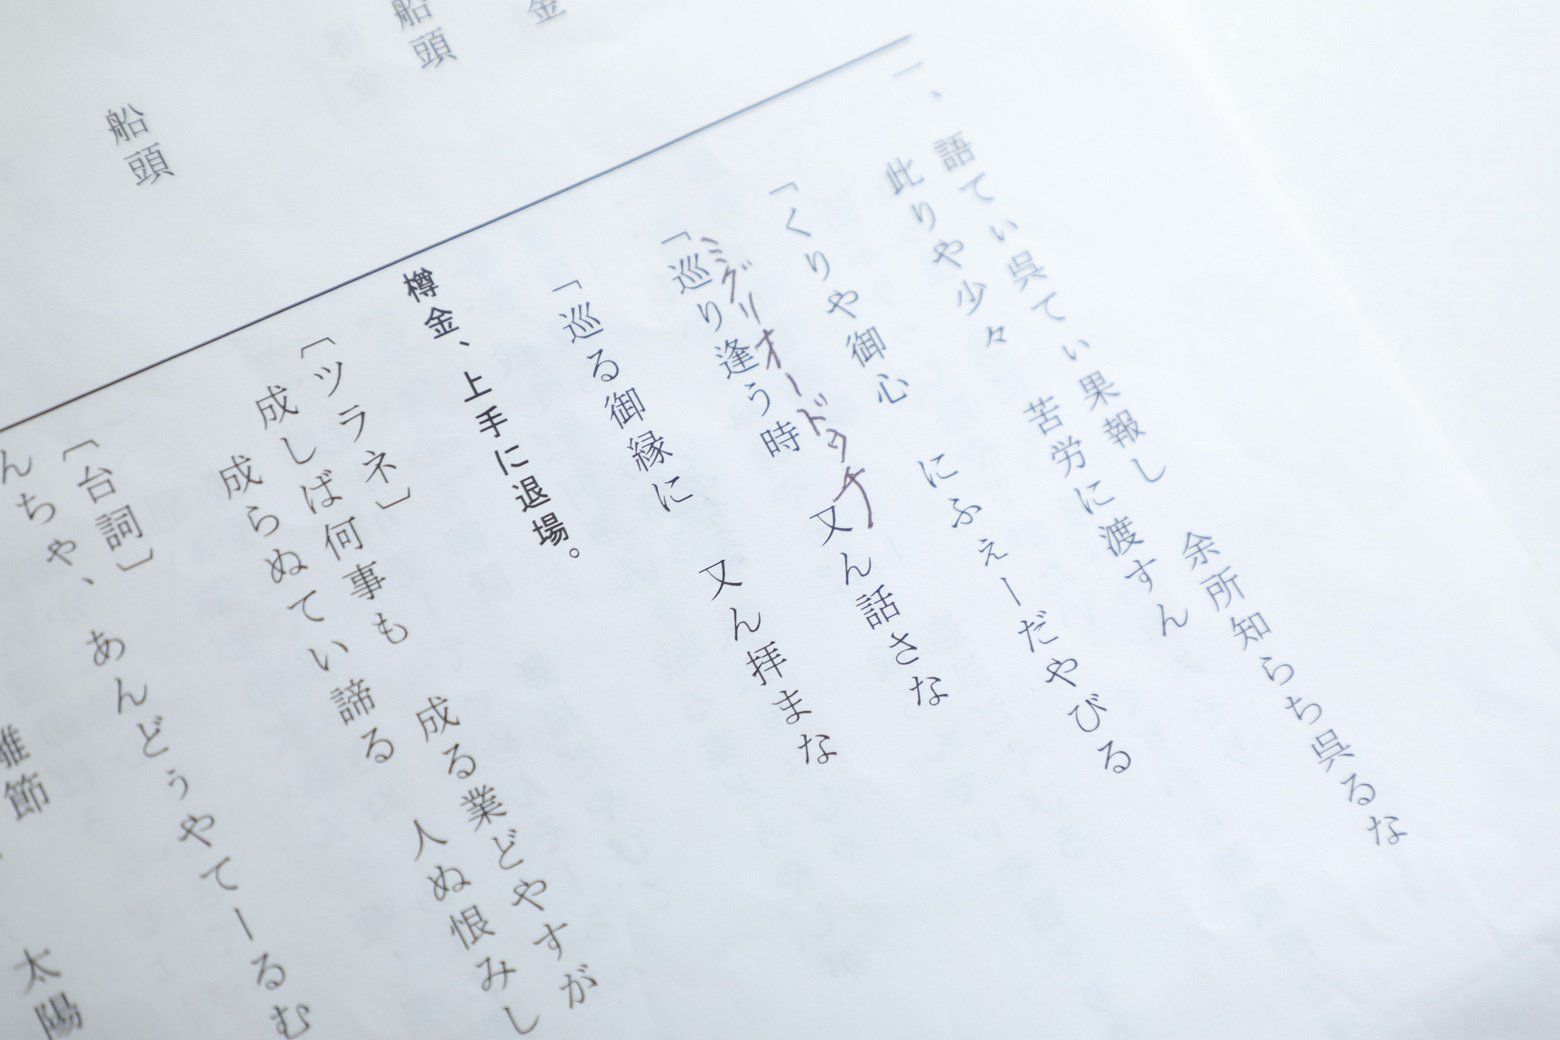 一、語てぃ呉てぃ果報し　余所知らち呉るな
此りや少々　苦労に渡すん
「くりや御心　にふぇーだやびる
ミグリオードゥチ
「巡り逢う時　又ん話さな
「巡る御縁に　又ん拝まな
樽金、上手に退場。
〔ツラネ〕
成しば何事も　成る業どやすが
成らぬてい諦る　人ぬ恨みし
〔台詞〕
んちゃ、あんどぅやてーるむ
節
太陽
金
船頭
船頭